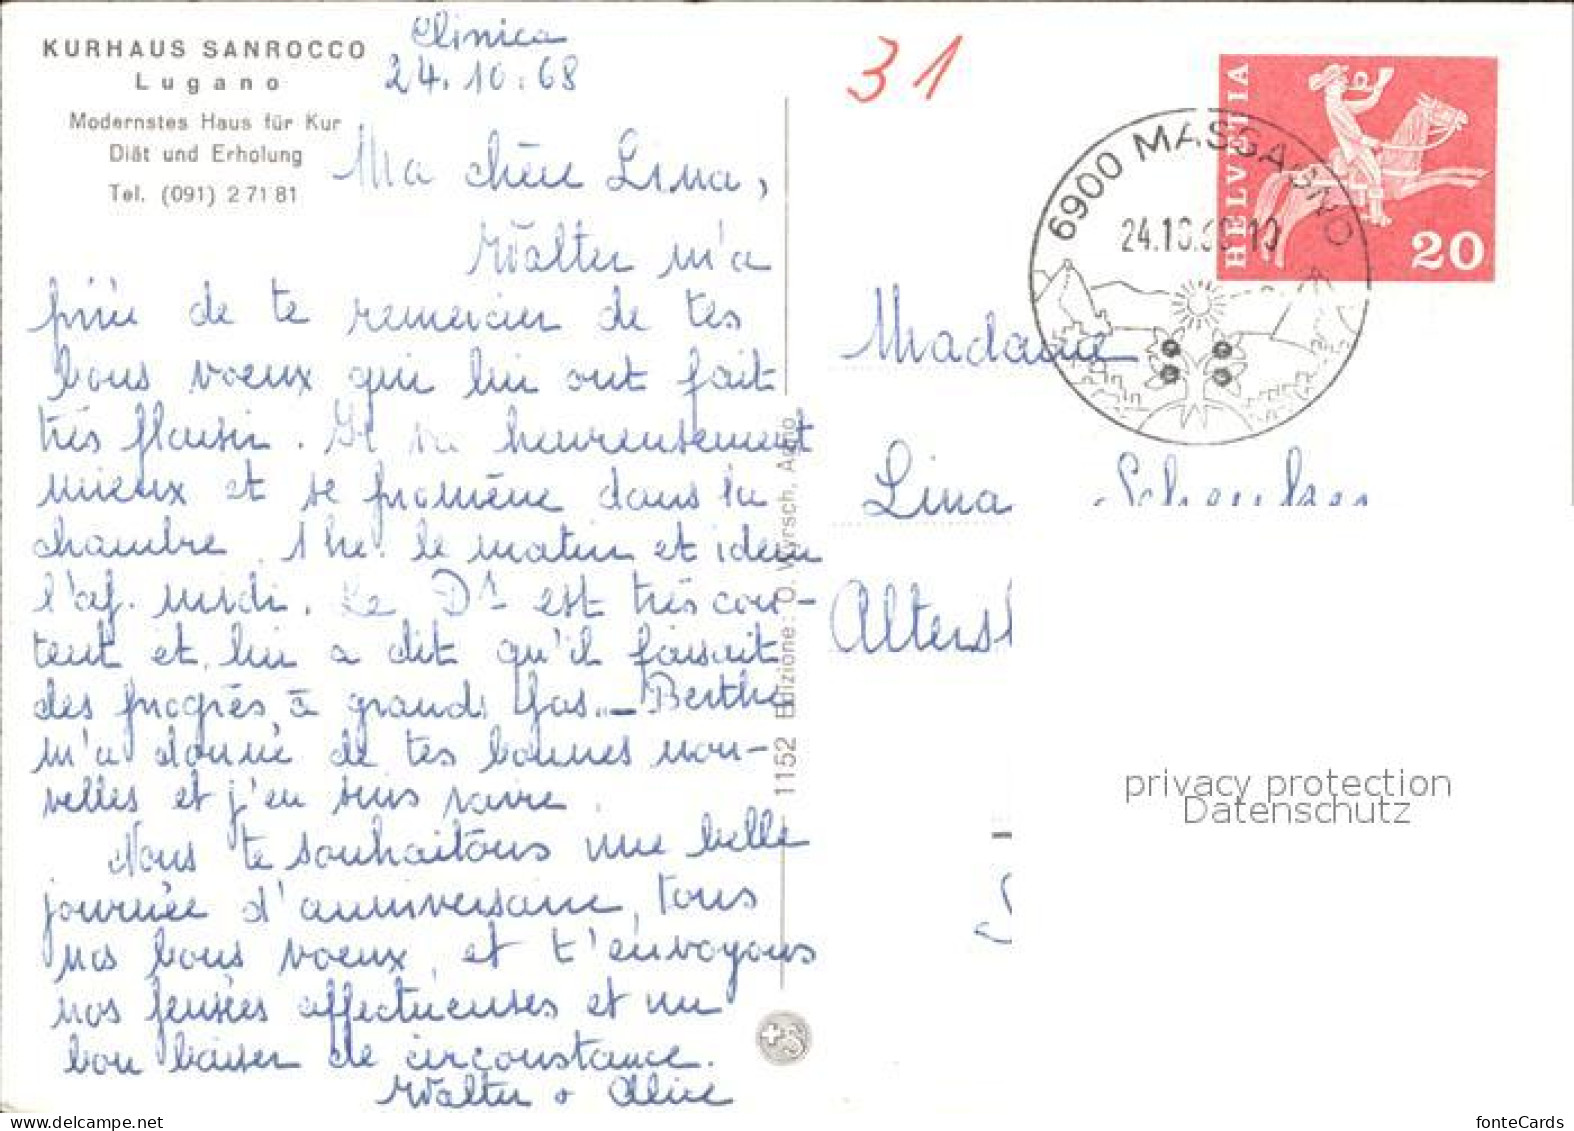 KURHAUS SANROCCO
Lugano
Modernstes Haus für Kur
Diät und Erholung
Tel. (091) 2 71 81
Clinica
24.10.68
Ma chère Lina,
Walter m'a
priée de te remercier de tes
bons voeux qui lui ont fait
très plaisir. Il va heureusement
mieux et se promène dans la
chambre 1 he. le matin et idem
l'af. midi. Le Dr est très con-
tent et lui a dit qu'il faisait
des progrès à grands pas. – Berthe
m'a donné de tes bonnes nou-
velles et j'en suis ravie.
Nous te souhaitons une belle
journée d'anniversaire, tous
nos bons voeux et t'envoyons
nos pensées affectueuses et un
bon baiser de circonstance.
Walter + Alice
1152 Edizione: O. Wyrsch, Agno
31
HELVETIA
20
6900 MASSAGNO
24.10.68-10
Madame
Lina
Alters
privacy protection
Datenschutz
www.delcampe.net
fonteCards